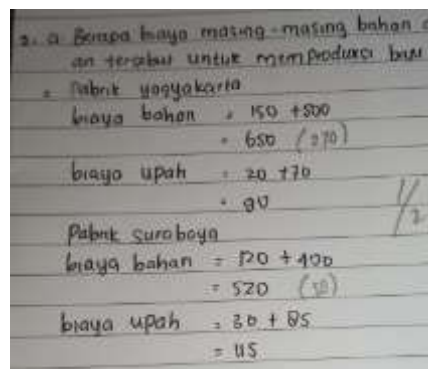 2. a Berapa biaya masing-masing bahan
an tersebut untuk memproduksi baju
= Pabrik yogyakarta
biaya bahan = 150 + 500
= 650 (270)
biaya upah = 20 + 70
= 90
1/2
Pabrik suraboya
biaya bahan = 120 + 400
= 520 (50)
biaya upah = 30 + 85
= 115